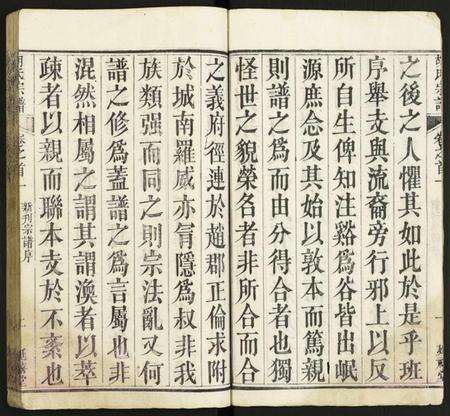 胡氏宗譜
卷之首
之後之人懼其如此於是乎班
序舉支與流裔旁行邪上以反
所自生俾知注谿為谷皆出岷
源庶念及其始以敦本而篤親
則譜之為而由分得合者也獨
怪世之貌榮名者非所合而合
之義府徑連於趙郡正倫求附
於城南羅威亦冐隱為叔非我
族類强而同之則宗法亂又何
譜之修為蓋譜之為言屬也非
混然相屬之謂其謂渙者以萃
疎者以親而聯本支於不紊也
胡氏宗譜
卷之首
新刊宗譜序
一